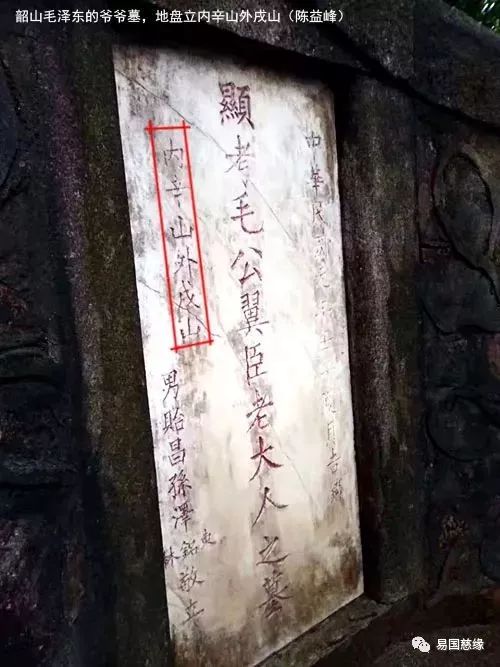 韶山毛泽东的爷爷墓，地盘立内辛山外戌山（陈益峰）
中華民國元年
顯考毛公翼臣老大人之墓
内辛山外戌山
男貽昌孫澤
銘
林
敬立
易国慈缘